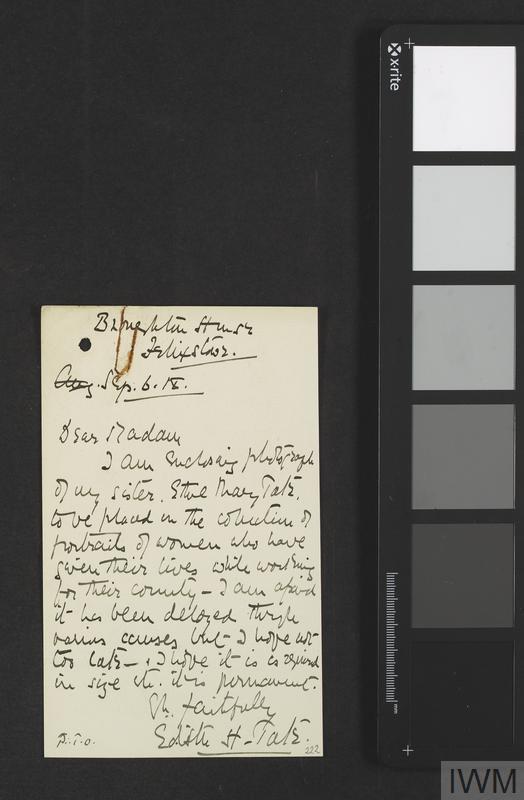 Broughton House
Felixstowe.
Aug. Sep. 6. 18.
Dear Madam
I am enclosing photograph
of my sister, Ethel Mary Tate,
to be placed in the collection of
portraits of women who have
given their lives while working
for their country - I am afraid
it has been delayed through
various causes but I hope not
too late - & I hope it is as required
in size etc. it is permanent.
Yrs. faithfully
Edith H. Tate.
P.T.O.
222
x-rite
mm
IWM